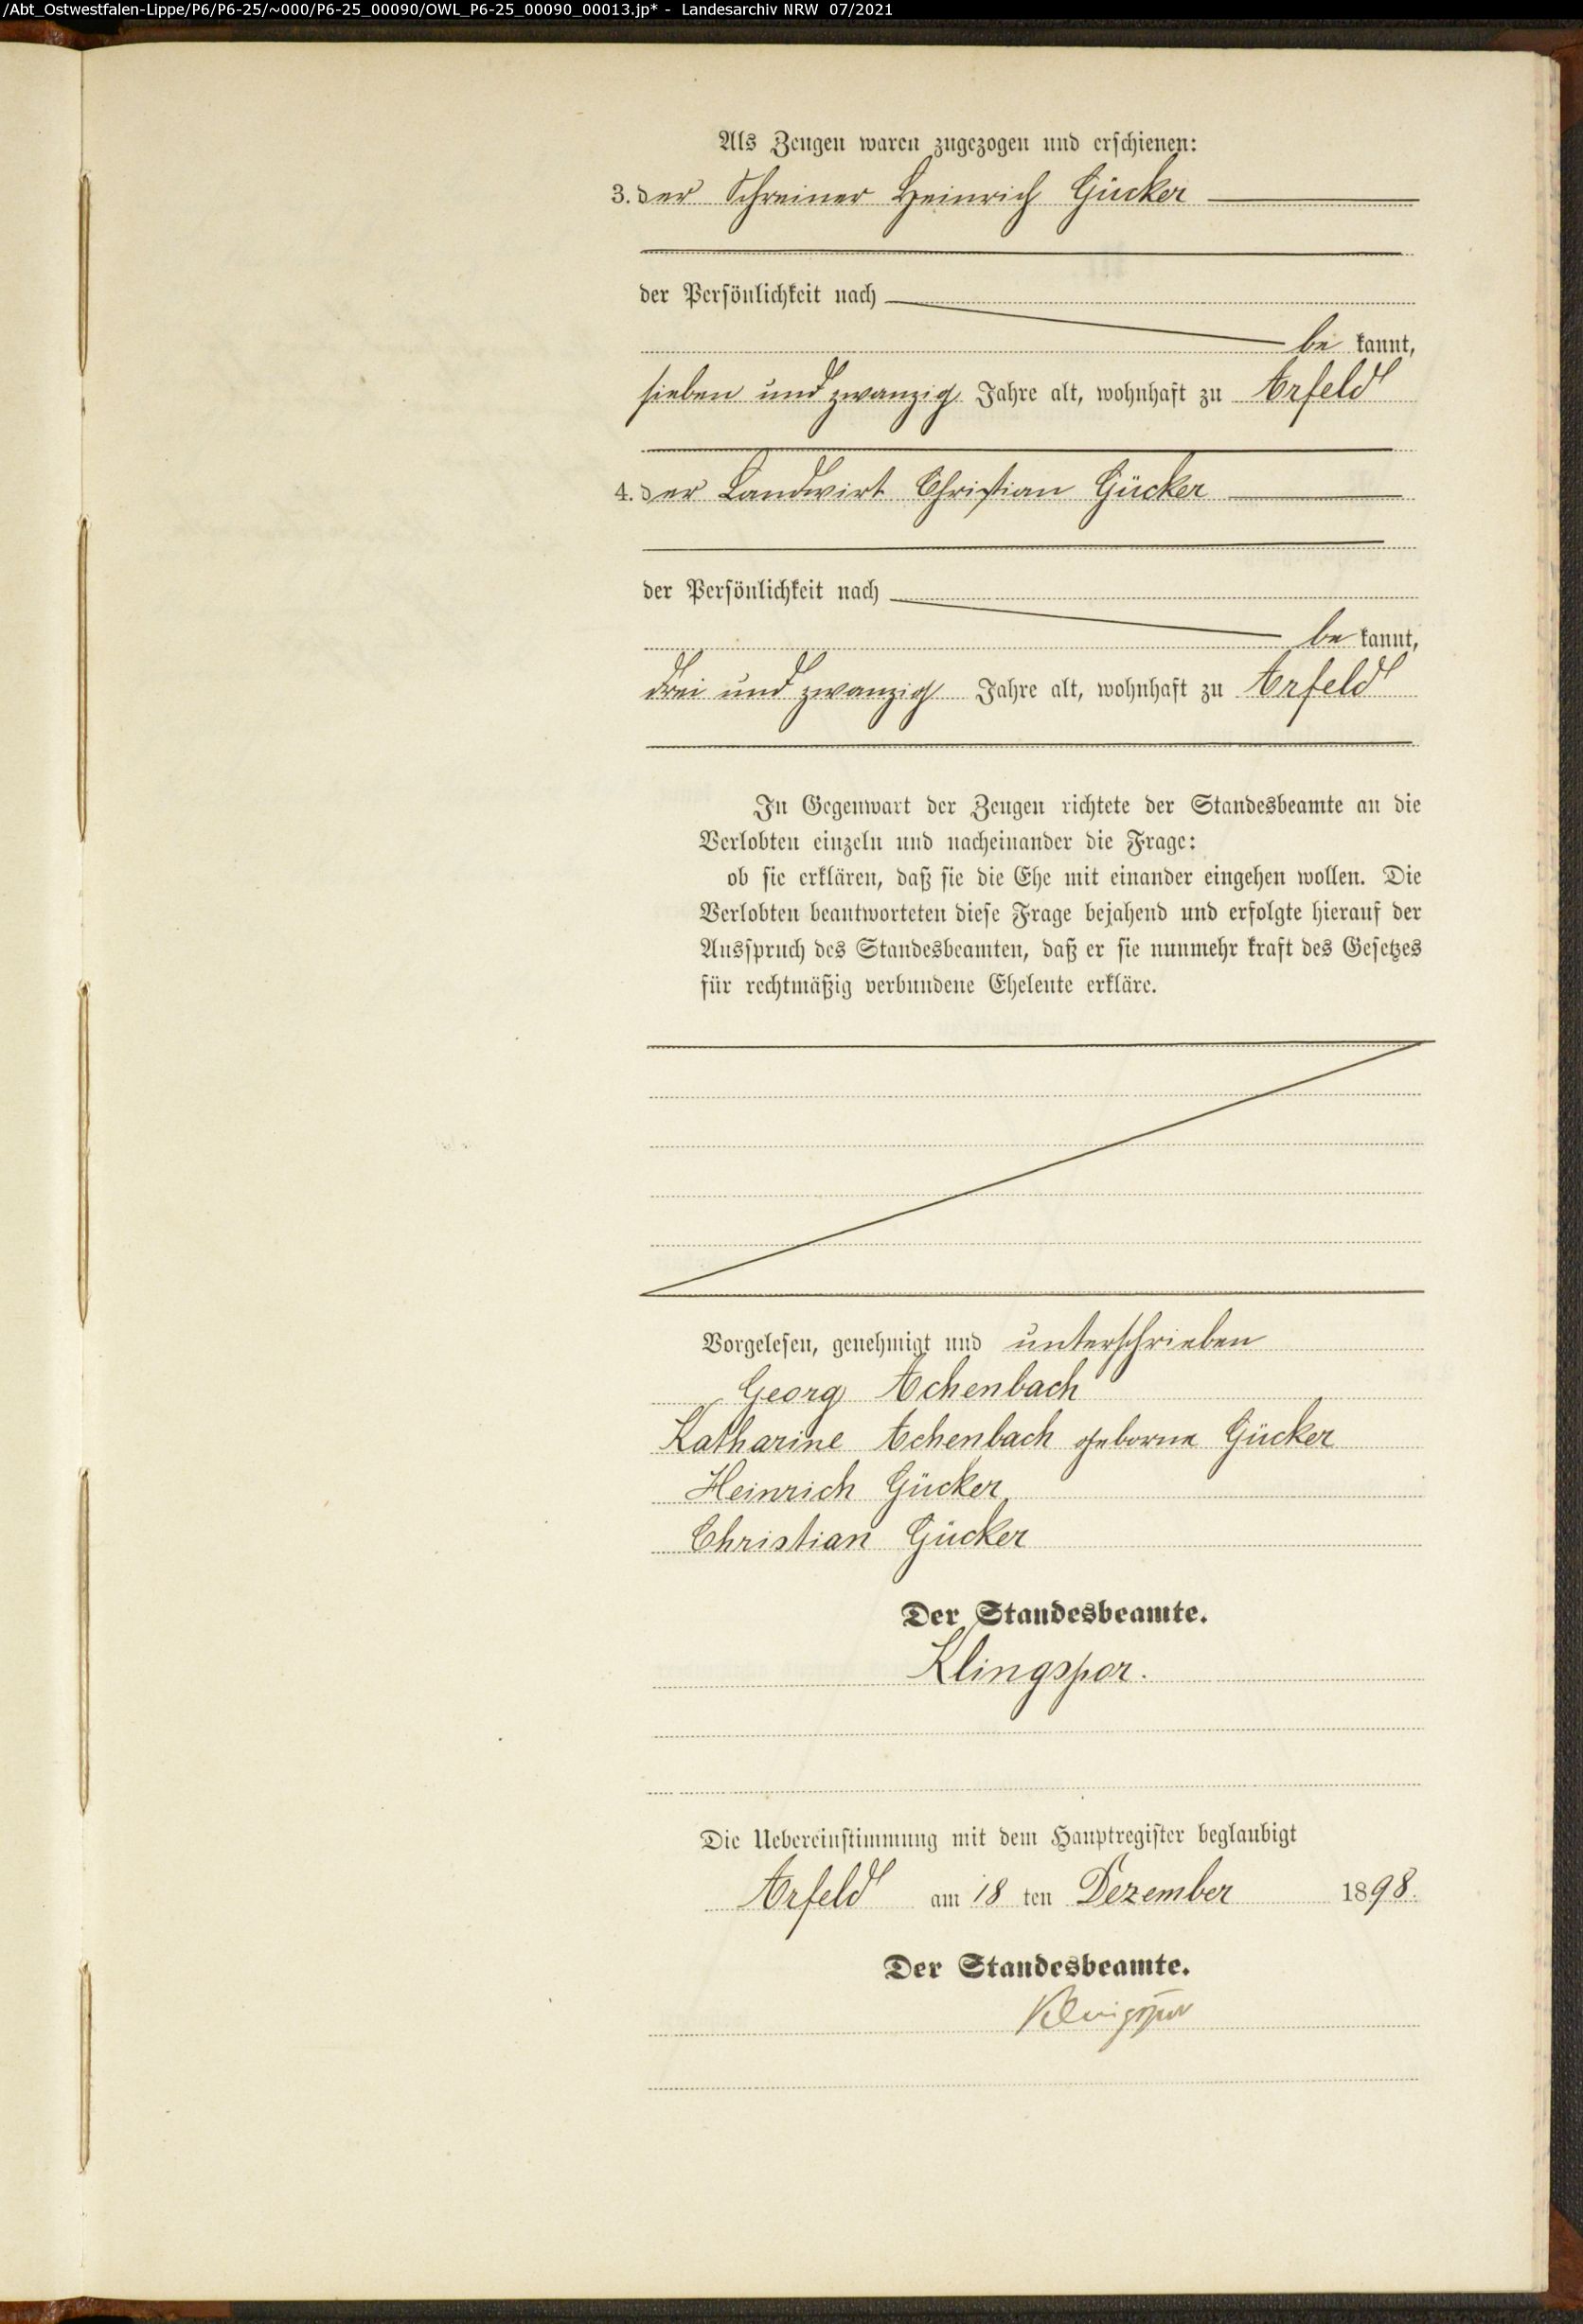 /Abt_Ostwestfalen-Lippe/P6/P6-25/~000/P6-25_00090/OWL_P6-25_00090_00013.jp* - Landesarchiv NRW 07/2021
Als Zeugen waren zugezogen und erschienen:
3. der Schreiner Heinrich Gücker
der Persönlichkeit nach
be kannt,
sieben und zwanzig Jahre alt, wohnhaft zu Arfeld
4. der Landwirt Christian Gücker
der Persönlichkeit nach
be kannt,
drei und zwanzig Jahre alt, wohnhaft zu Arfeld
In Gegenwart der Zeugen richtete der Standesbeamte an die
Verlobten einzeln und nacheinander die Frage:
ob sie erklären, daß sie die Ehe mit einander eingehen wollen. Die
Verlobten beantworteten diese Frage bejahend und erfolgte hierauf der
Ausspruch des Standesbeamten, daß er sie nunmehr kraft des Gesetzes
für rechtmäßig verbundene Eheleute erkläre.
Vorgelesen, genehmigt und unterschrieben
Georg Achenbach
Katharine Achenbach geborne Gücker
Heinrich Gücker
Christian Gücker
Der Standesbeamte.
Klingspor.
Die Uebereinstimmung mit dem Hauptregister beglaubigt
Arfeld am 18 ten Dezember 1898.
Der Standesbeamte.
Klingspor